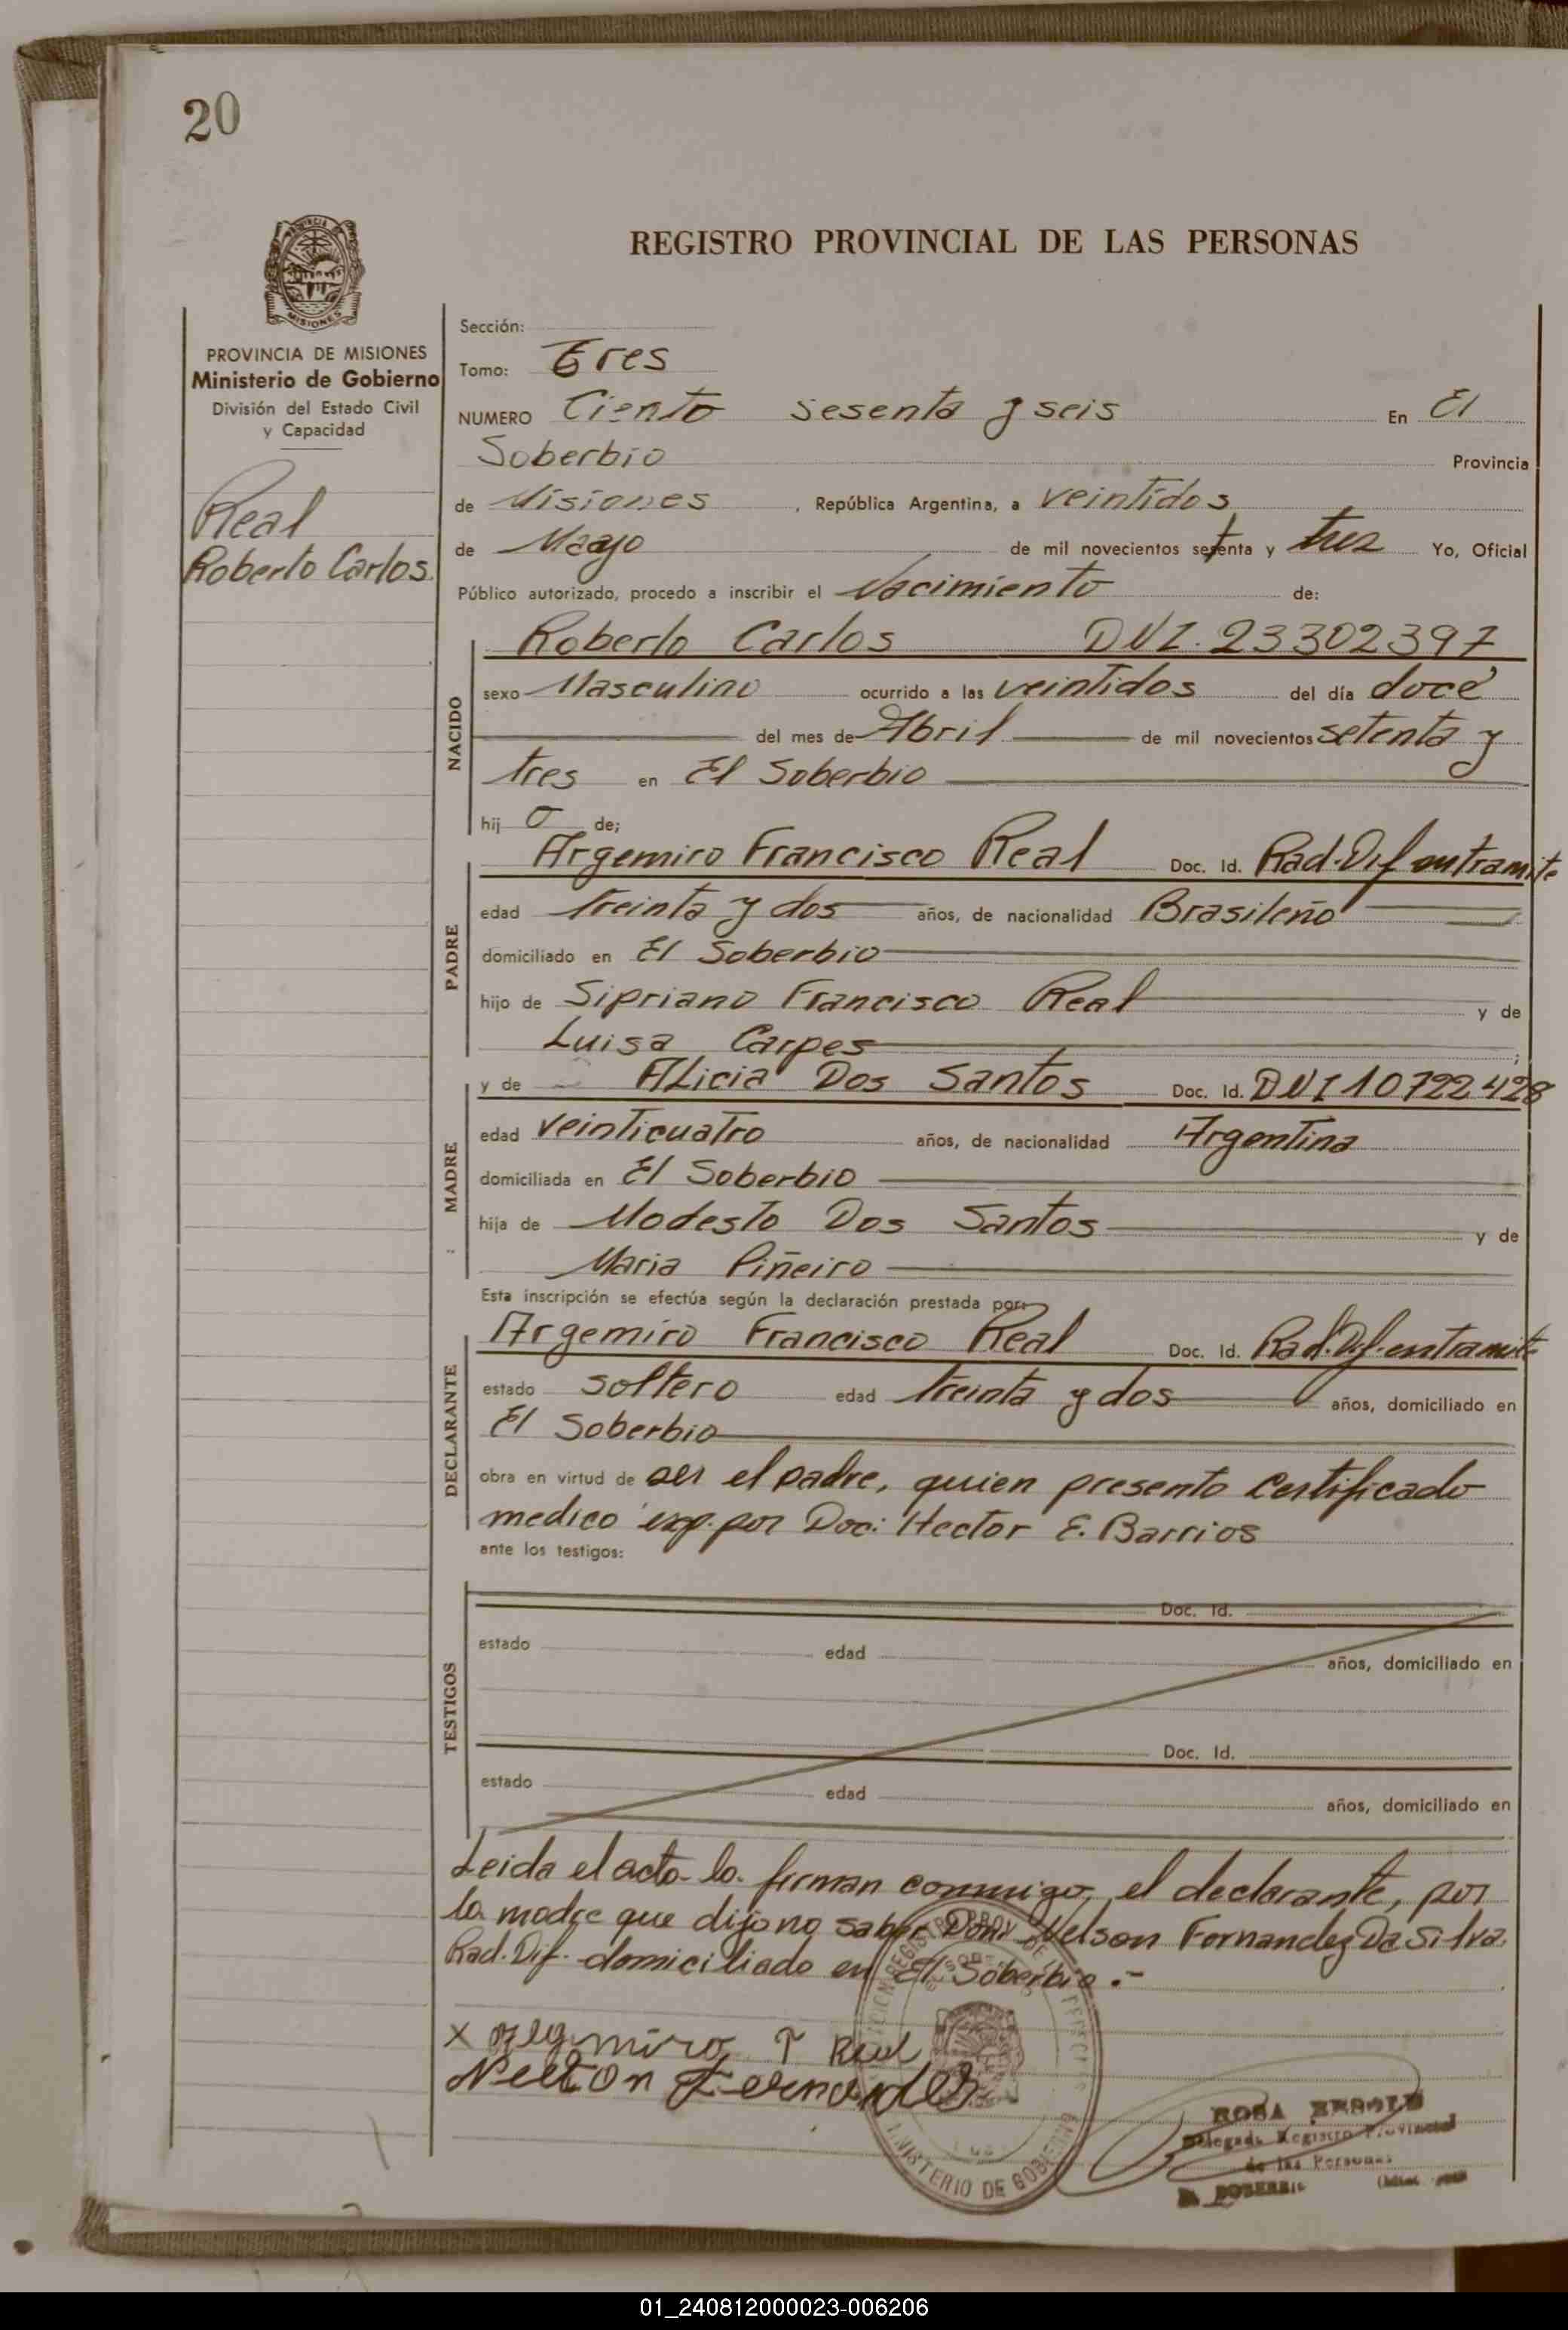 20
PROVINCIA DE MISIONES
Ministerio de Gobierno
División del Estado Civil
y Capacidad
Real
Roberto Carlos.
REGISTRO PROVINCIAL DE LAS PERSONAS
Sección:
Tomo: Tres
NUMERO Ciento sesenta y seis En El
Soberbio Provincia
de Misiones, República Argentina, a veintidos
de Mayo de mil novecientos setenta y tres Yo, Oficial
Público autorizado, procedo a inscribir el Nacimiento de:
NACIDO
Roberto Carlos DNI. 23302397
sexo Masculino ocurrido a las veintidos del día doce
del mes de Abril de mil novecientos setenta y
tres en El Soberbio
hij o de;
PADRE
Argemiro Francisco Real Doc. Id. Rad. Dif en tramite
edad treinta y dos años, de nacionalidad Brasileño
domiciliado en El Soberbio
hijo de Sipriano Francisco Real y de
Luisa Carpes;
MADRE
y de Alicia Dos Santos Doc. Id. DNI 10722428
edad veinticuatro años, de nacionalidad Argentina
domiciliada en El Soberbio
hija de Modesto Dos Santos y de
Maria Piñeiro
Esta inscripción se efectúa según la declaración prestada por:
DECLARANTE
Argemiro Francisco Real Doc. Id. Rad. Dif. en tramite
estado soltero edad treinta y dos años, domiciliado en
El Soberbio
obra en virtud de ser el padre, quien presento certificado
medico exp. por Doc: Hector E. Barrios
ante los testigos:
TESTIGOS
Doc. Id.
estado edad años, domiciliado en
Doc. Id.
estado edad años, domiciliado en
Leida el acta la firman conmigo, el declarante, por
la madre que dijo no saber Don Nelson Fernandez Da Silva
Rad. Dif. domiciliado en El Soberbio.-
x argemiro F Real
Nelson Fernandes
MINISTERIO DE GOBIERNO
ROSA
Delegada Registro Provincial
de las Personas
EL SOBERBIO
01_240812000023-006206